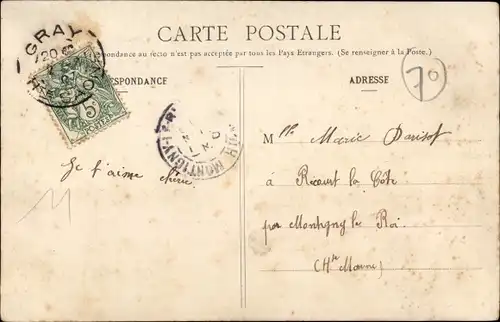 CARTE POSTALE
pondance au recto n'est pas acceptée par tous les Pays Etrangers. (Se renseigner à la Poste.)
RESPONDANCE
ADRESSE
70
GRAY
5c
POSTES
MONTIGNY-LE-R
Mlle Marie Parisot
Je t'aime chérie
à Récourt la Côte
par Montigny le Roi
(Hte Marne)